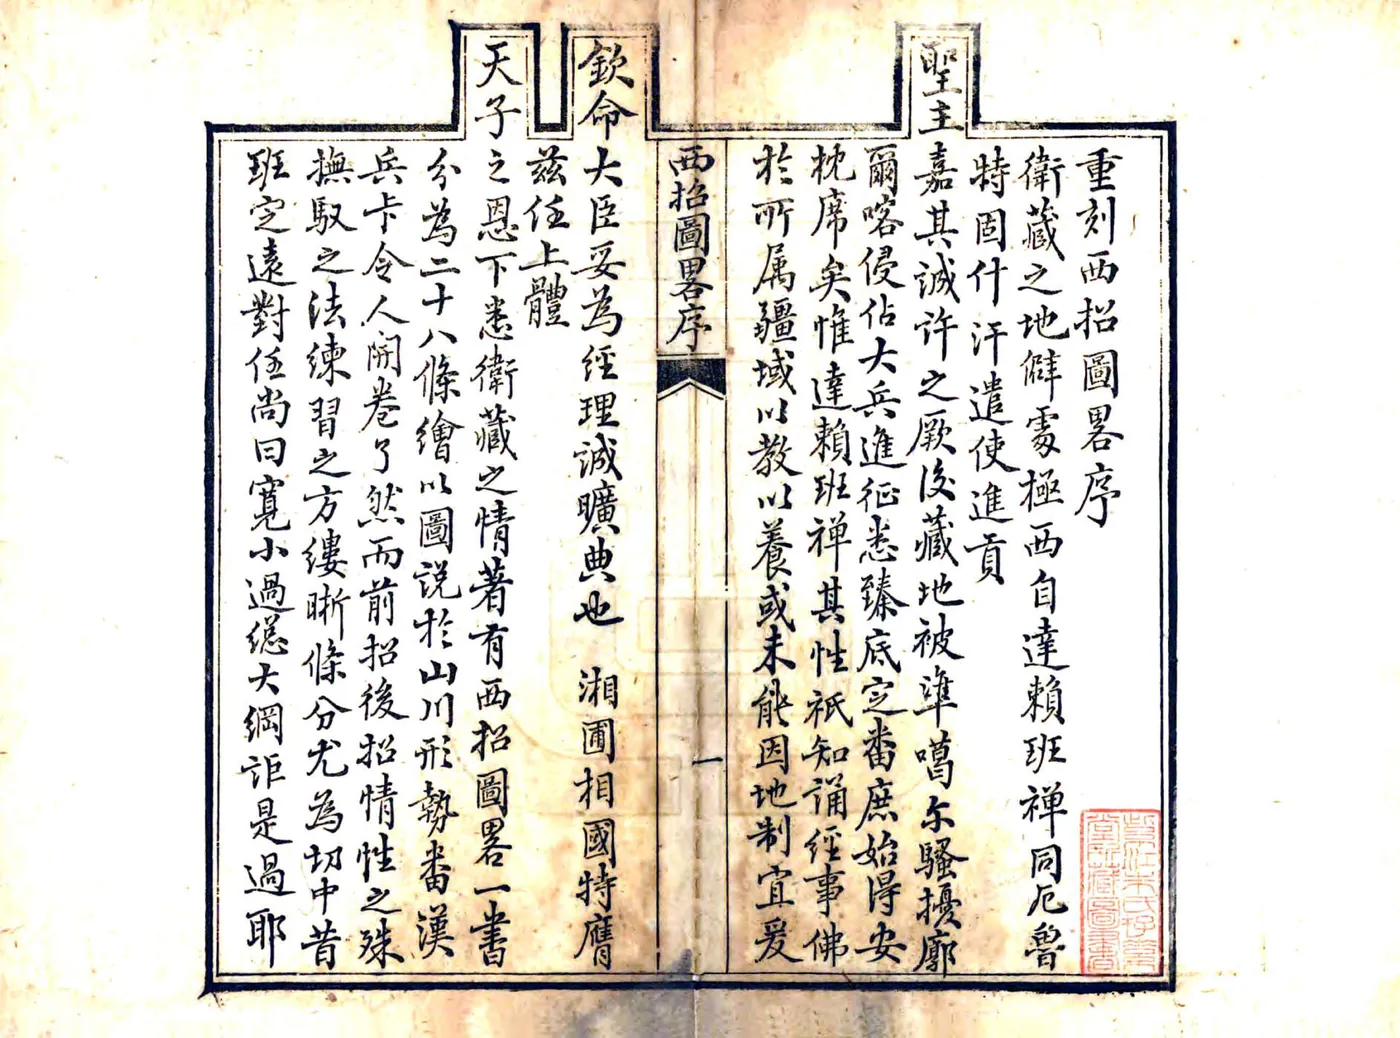 重刻西招圖畧序
衛藏之地僻處極西自達賴班禅同厄魯
特固什汗遣使進貢
聖主嘉其誠許之厥後藏地被準噶尔騷擾廓
爾喀侵佔大兵進征悉臻底定番庶始得安
枕席矣惟達賴班禅其性祇知誦經事佛
於所属疆域以教以養或未能因地制宜爰
西招圖畧序
一
欽命大臣妥為經理誠曠典也 湘圃相國特膺
兹任上體
天子之恩下悉衛藏之情著有西招圖畧一書
分為二十八條繪以圖説於山川形勢番漢
兵卡令人開卷了然而前招後招情性之殊
撫馭之法練習之方縷晰條分尤為切中昔
班定遠對任尚曰寬小過緫大綱詎是過耶